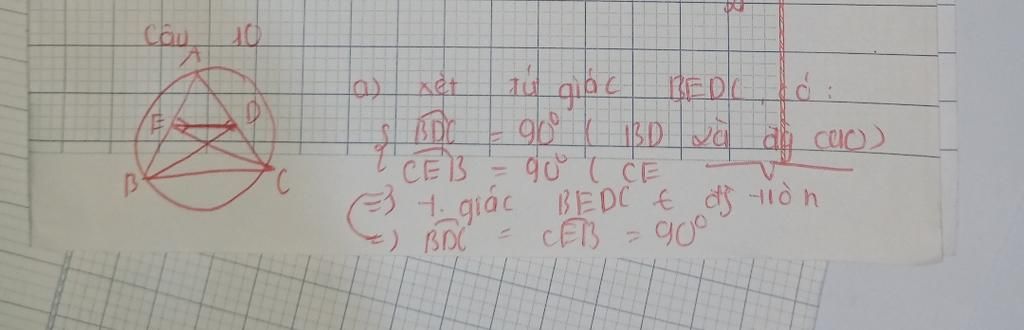 Câu 10
A
E D
B C
a) xét tứ giác BEDC, có:
{ BDC = 90° ( BD là đg cao)
CEB = 90° ( CE
=> t. giác BEDC € đg tròn
=) BDC = CEB = 90°